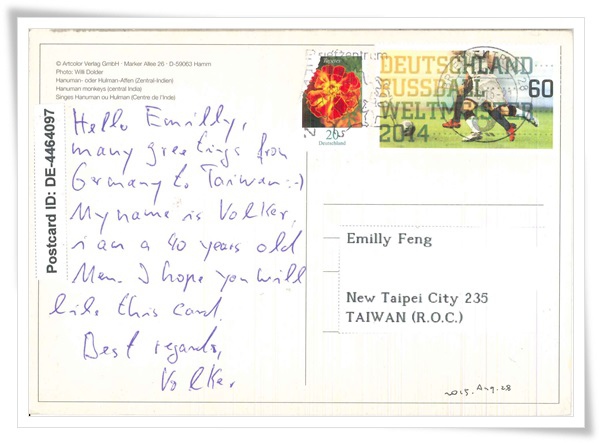 © Artcolor Verlag GmbH · Marker Allee 26 · D-59063 Hamm
Photo: Willi Dolder
Hanuman- oder Hulman-Affen (Zentral-Indien)
Hanuman monkeys (central India)
Singes Hanuman ou Hulman (Centre de l'Inde)
Postcard ID: DE-4464097
Hello Emilly,
many greetings from
Germany to Taiwan :-)
My name is Volker,
i am a 40 years old
Men. I hope you will
like this card.
Best regards,
Volker
Briefzentrum
20
Deutschland
DEUTSCHLAND
FUSSBALL
WELTMEISTER
2014
60
Emilly Feng
New Taipei City 235
TAIWAN (R.O.C.)
2015. Aug. 28